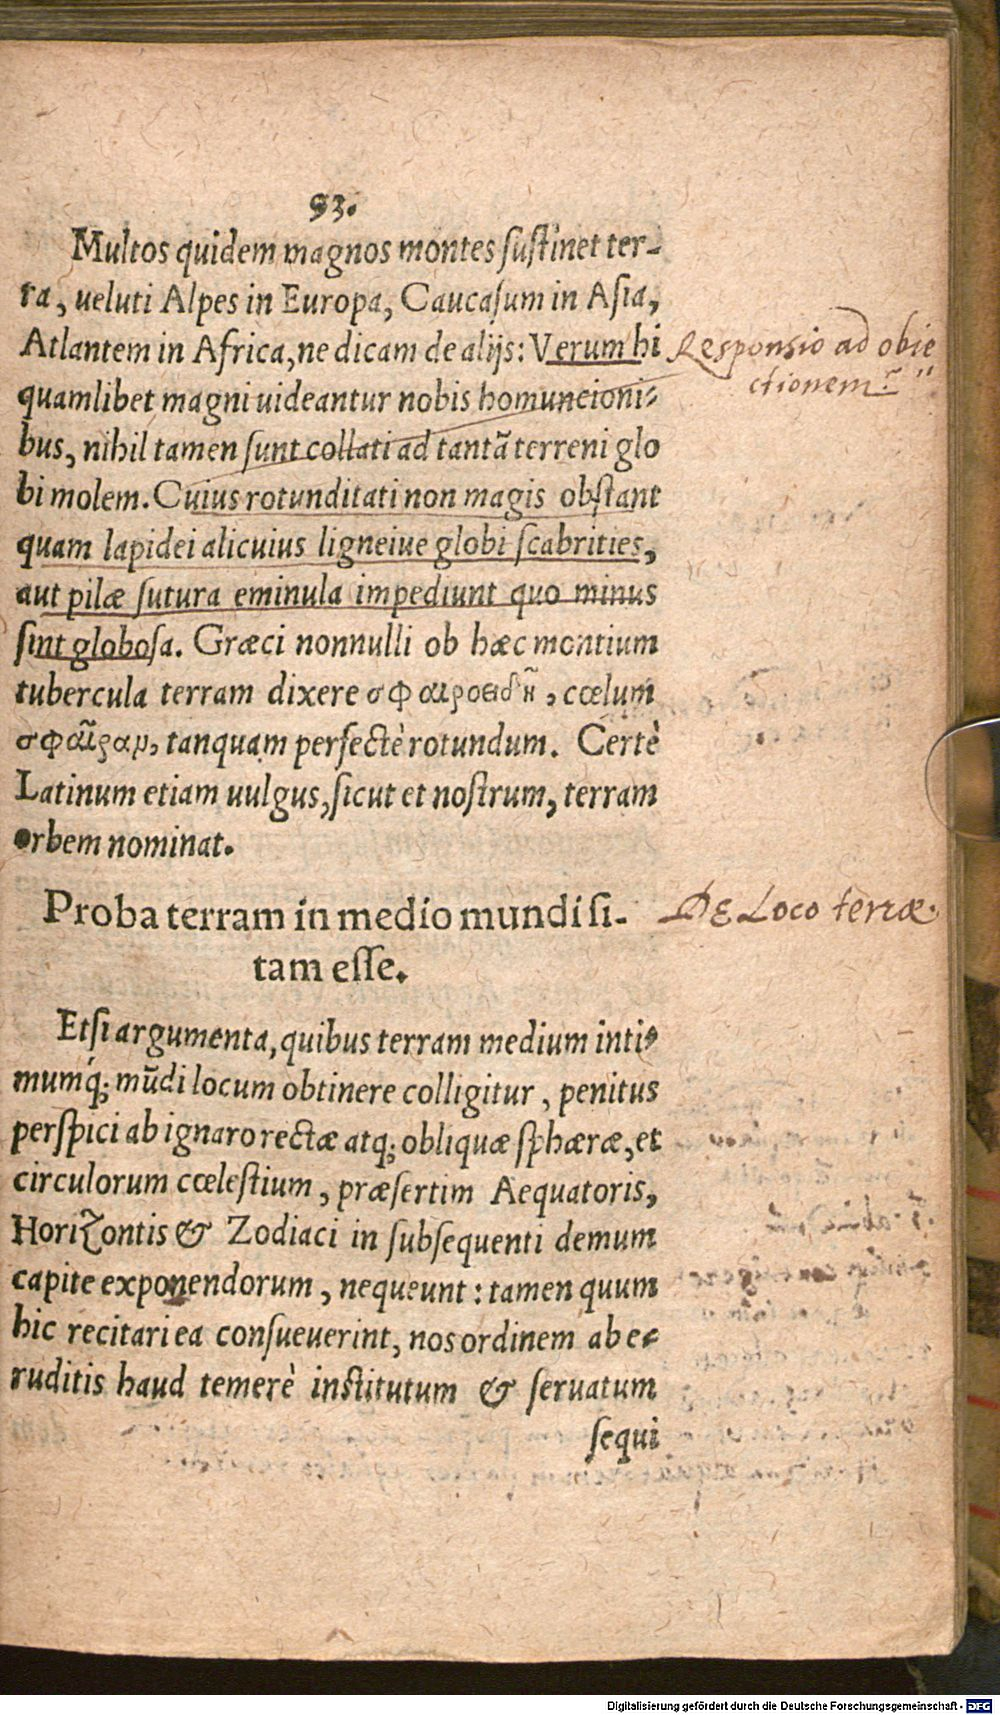 93.
Multos quidem magnos montes ſuſtinet ter-
ra, ueluti Alpes in Europa, Caucaſum in Aſia,
Atlantem in Africa, ne dicam de alijs: Verum hi
Responsio ad obie
ctionem
quamlibet magni uideantur nobis homuncioni-
bus, nihil tamen ſunt collati ad tantã terreni glo
bi molem. Cuius rotunditati non magis obſtant
quam lapidei alicuius ligneiue globi ſcabrities,
aut pilæ ſutura eminula impediunt quo minus
ſint globoſa. Græci nonnulli ob hæc montium
tubercula terram dixere σφαιροειδῆ, cœlum
σφαῖραν, tanquam perfectè rotundum. Certè
Latinum etiam uulgus, ſicut et noſtrum, terram
orbem nominat.
Proba terram in medio mundi ſi-
tam eſſe.
De Loco terræ.
Etſi argumenta, quibus terram medium inti-
mumq́; mũdi locum obtinere colligitur, penitus
perſpici ab ignaro rectæ atq; obliquæ ſphæræ, et
circulorum cœleſtium, præſertim Aequatoris,
Horizontis & Zodiaci in ſubſequenti demum
capite exponendorum, nequeunt: tamen quum
hic recitari ea conſueuerint, nos ordinem ab e-
ruditis haud temerè inſtitutum & ſeruatum
ſequi
Digitalisierung gefördert durch die Deutsche Forschungsgemeinschaft - DFG